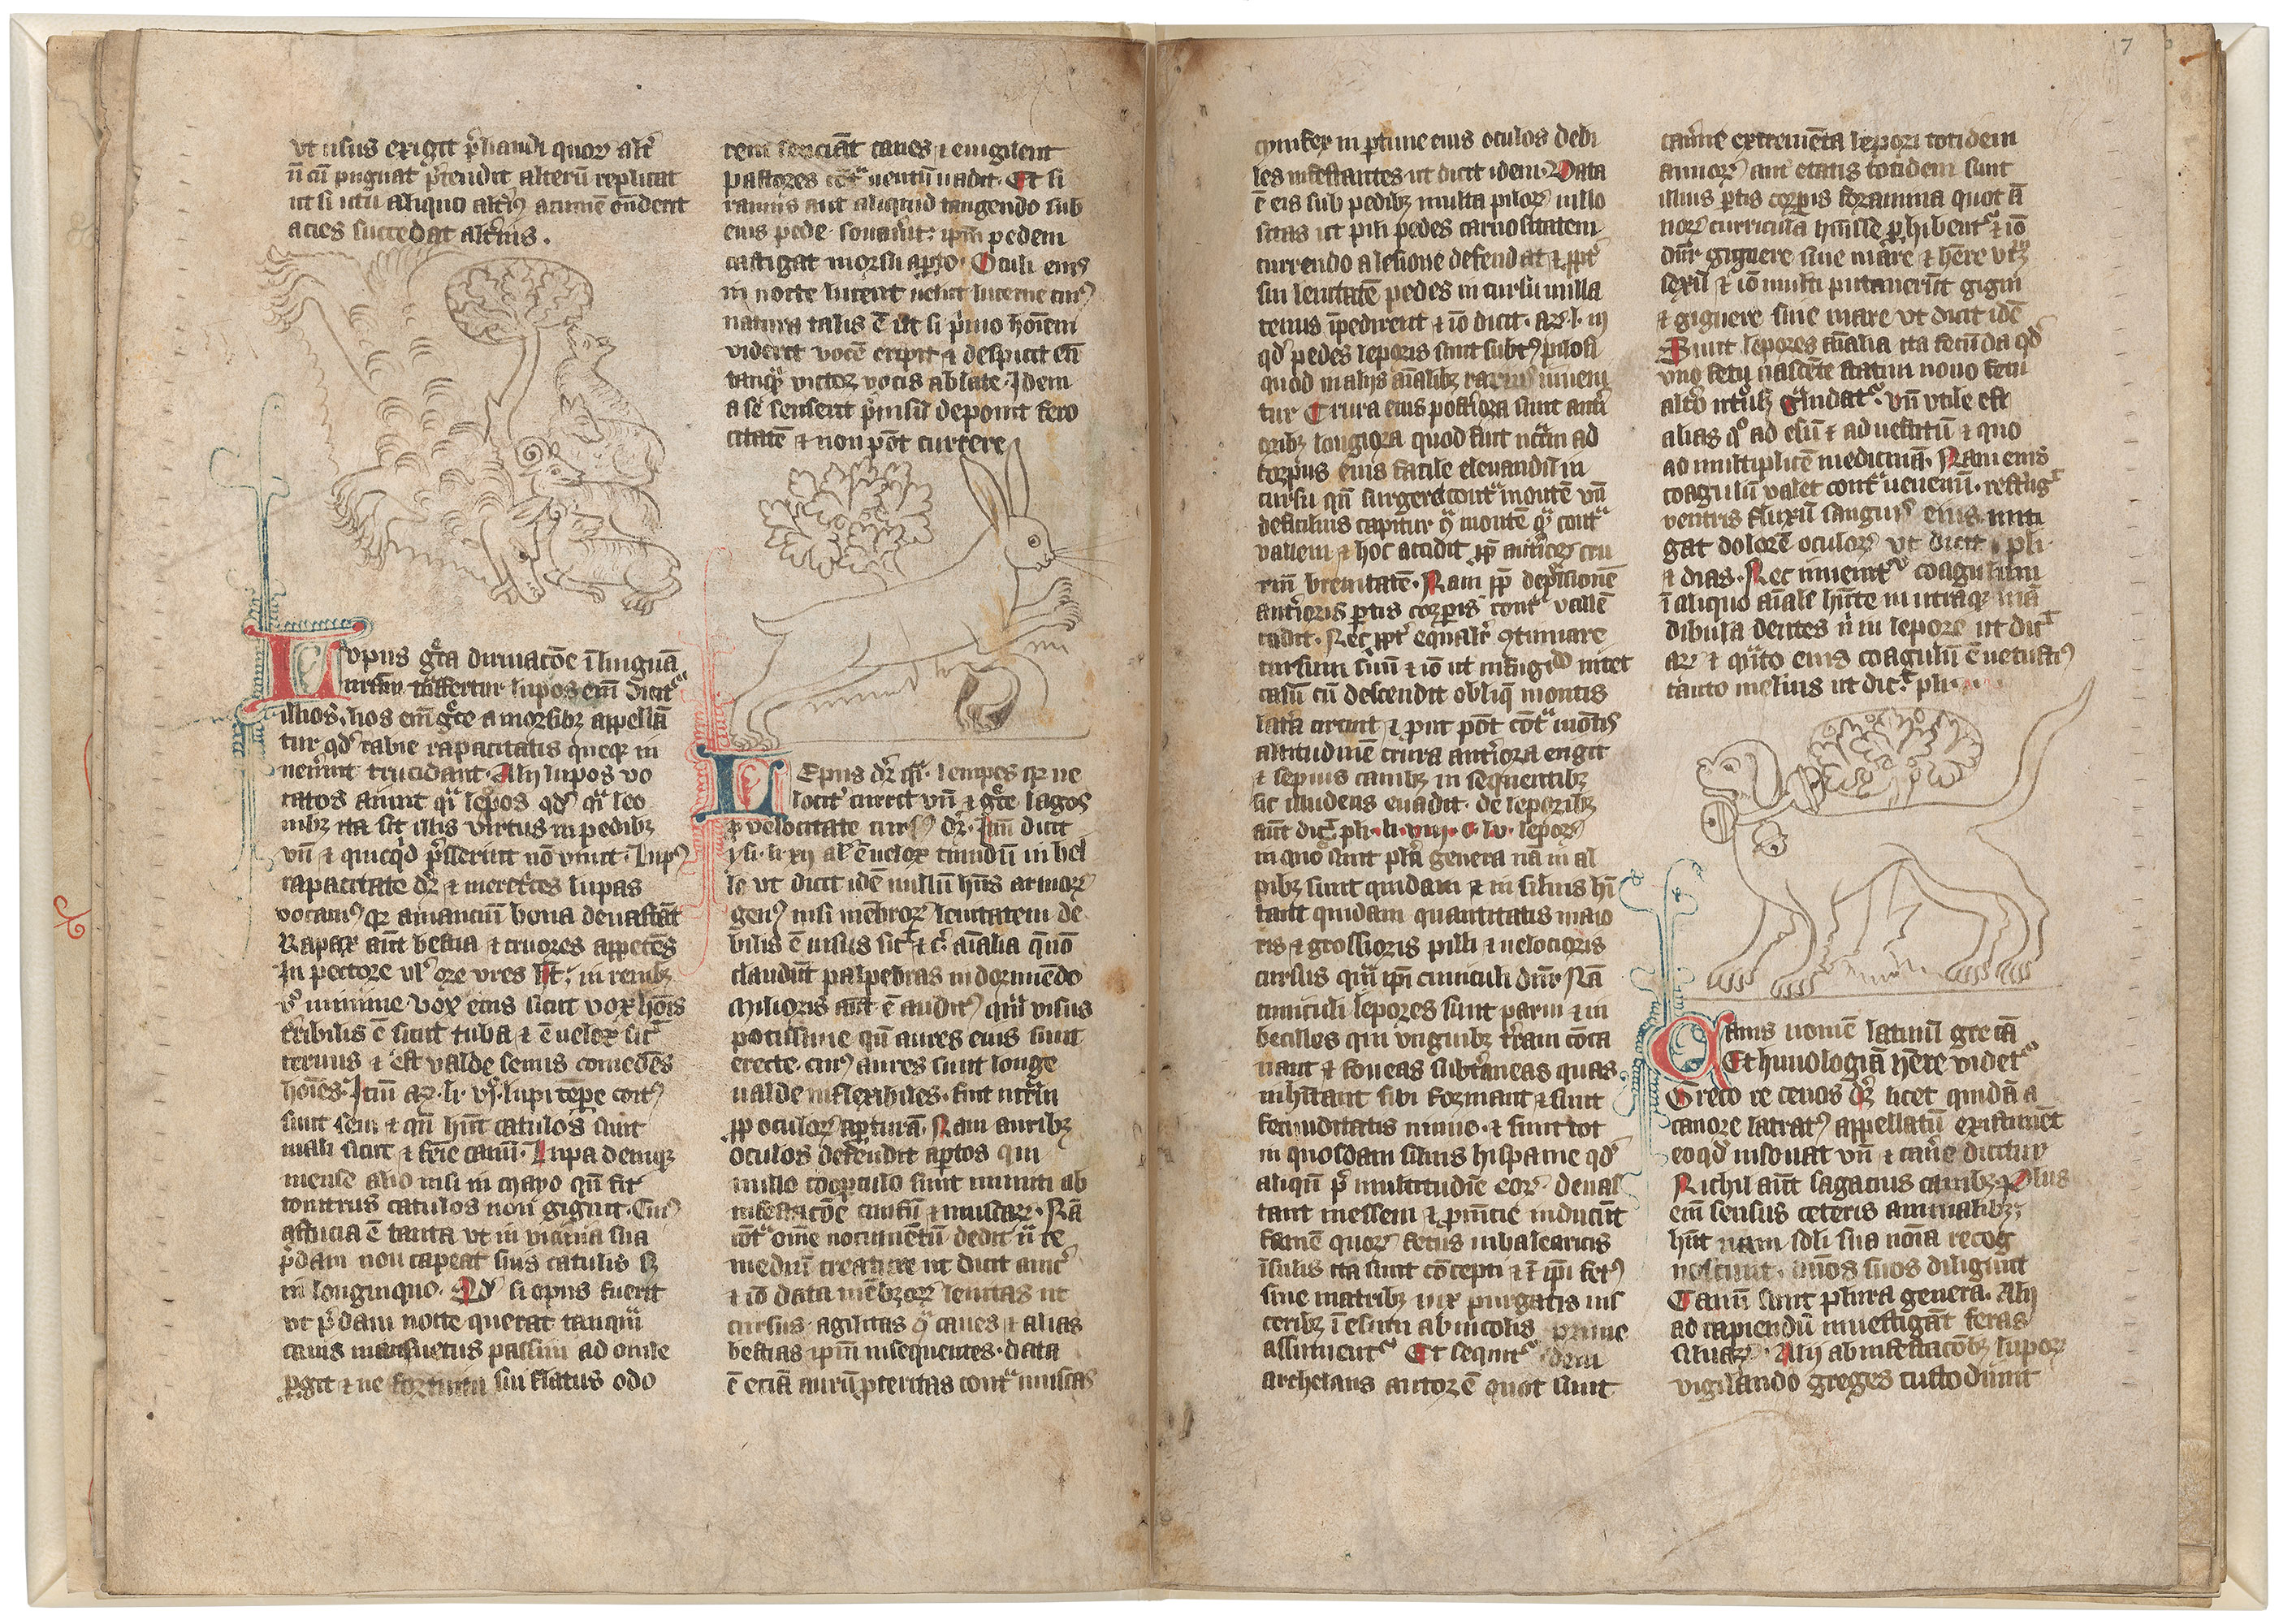 vt usus exigit p̄liandi quoꝝ alt̄
n̄ cū pugnat p̄tendit alterū replicat
ut si ictu aliquo alt̄iꝰ acumē oñdent
acies succedat alt̄ius .
Lvpus gͣca diriuacōe ī linguā
nr̄am tͣnsfertur lupos em̄ dicūt
illi hos em̄ gͣce a morsibꝫ appellā
tur qd̓ rabie rapacitatis queqꝫ in
uen̄int trucidant . Alij lupos vo
catos aiunt qͣi leopos qd̓ qͣi leo
nibꝫ ita sit illis virtus in pedibꝫ
vn̄ ⁊ quicqͥd p̄sserint nō viuit . Lupꝰ
rapacitate dr̄ ⁊ meret̄ces lupas
vocamꝰ qꝛ amantiū bona deuastāt
Rapax aūt bestia ⁊ cruores appetēs
In pectore vl̓ ore vires ht̄ . in renibꝫ
v̊ minime vox eius sicut vox hoīs
t̄ribilis ē sicut tuba ⁊ ē uelox sic̄
ceruus ⁊ est valde
hoīes . Itm̄ aꝛ . li . vj . lupi tēpe coitꝰ
sunt seui ⁊ qn̄ hn̄t catulos sunt
mali sicut ⁊ feīe canū . Lupa deniqꝫ
mense alio nisi in mayo qn̄ fit
tonitrus catulos non gignit . Cuiꝰ
astucia ē tanta vt in vicinia sua
p̄dam non capeat suis catulis sꝫ
in longinquo . Qd̓ si opus fuerit
vt p̄dam nocte querat tanqͣm
canis mansuetus passim ad ouile
ꝑgit ⁊ ne fortuitu sui flatus odo
rem senciāt canes ⁊ euigilent
pastores cōtͣ uentū uadit . Et si
ramus aut aliquid tangendo sub
eius pede sonauit . ipm̄ pedem
castigat morsu aꝑto . Oculi eius
in nocte lucent uelut lucerne cuiꝰ
natura talis ē ut si pͥmo hoīem
viderit vocē eripit ⁊ despicit eū
tanqͣ victor vocis ablate . Idem
a se senserit pͥuisū deponit fero
citatē ⁊ non pōt currere
LEpus dr̄ qͣi . leuipes qꝛ ue
locit̄ currit vn̄ ⁊ gͣce lagos
ꝓ velocitate cursꝰ dr̄ . Itm̄ dicit
ysi . li . xij al̓ ē uelox timidū inbel
le vt dicit idē nullū hn̄s armoꝝ
genꝰ nisi mēbroꝝ leuitatem de
bilis ē uisus sic̄ ⁊ c̄ aīalia qͦm
claudūt palpebras in dormiēdo
Melioris aūt ē auditꝰ qͣm visus
potissime qn̄ aures eius sunt
erecte . cuiꝰ aures sunt longe
ualde inflexibiles . sūt
ꝓp oculoꝝ aꝑturā . Nam auribꝫ
oculos defendit aꝑtos qui
nullo cooꝑculo sunt muniti ab
infestacōe culicū ⁊ muscaꝝ . Nā
cōtͣ om̄e nocumētū dedit n̄ re
mediū creature ut dicit auic̄
⁊ iō data mēbroꝝ leuitas ut
cursus agilitas qͣ canes ⁊ alias
bestias ipm̄ insequentes . data
ē eciā auriū ꝑteritas contͣ muscas
cynifex in ꝑtune eius oculos debi
les infestantes ut dicit idem . Data
ē eis sub pedibꝫ multa piloꝝ uillo
sitas ut pili pedes carnositatem
currendo a lesione defendat ⁊ ꝓpt̄
sui leuitatē pedes in cursu nulla
tenus īpedirent ⁊ iō dicit . aꝛ . l . iij
qd̓ pedes leporis sunt subtꝰ pilosi
quod in alijs aīalibꝫ rarius inueni
tur Crura eius posteriora sunt ant̄i
oribꝫ longiora quod sint
corpus eius facile eleuandū in
cursu qn̄ surgere contͣ montē vn̄
deficilius capitur qͣ montē qͣ contͣ
vallem ⁊ hoc accidit ꝓp ant̄ioꝝ cru
riū breuitatē . Nam ꝓp depͥcionē
ant̄ioris ꝑtis corꝑis contͣ vallē
cadit . Nec ꝓpt̄ equalit̄ ꝯtinuare
cursum suū ⁊ iō ut
casū cū descendit obliqͣ montis
lat̄a circuit ⁊ put pōt cōtͣ mōtis
altitudinē crura ant̄iora erigit
⁊ sepius canibꝫ insequentibꝫ
sic illudens euadit . de leporibꝫ
aūt dic̄ pli . li . viij . c . lv . leporꝫ
in quo sunt plͣa genera nā in al
pibꝫ sunt quidam ⁊ in siluis hī
tant quidam quantitatis maio
ris ⁊ grossioris pilli ⁊ uelocioris
cursus qͣm ipī cuniculi dn̄r Nā
cuniculi lepores sunt parui ⁊ in
becilles qui vnguibꝫ t̄ram cōca
uant ⁊ foueas subt̄aneas quas
inhītant sibi formant ⁊ sunt
fecunditatis nimie . ⁊ sunt tot
in quosdam siluis hispanie qd̓
aliqn̄ p̄ multitudīe eoꝝ deuas
tant messem ⁊ puīcie inducūt
famē quoꝝ fetus in balearicis
īsulis ita sunt cōcepti ⁊ ī ipī fetꝰ
siue matribꝫ vix purgatis uis
ceribꝫ ī esum ab incolis pͥme
assumentͬ Et sequitͬ idem
archelaus auctor ē quot sunt
cau̓ne extremēta lepori totidem
annoꝝ aut etatis totidem sunt
illius ꝑtis corꝑis foramina quot ā
noꝝ curricula hn̄isse ꝑhibentͬ ⁊ iō
dn̄r gignere siue mare ⁊ hēre vtͬqꝫ
sexū ⁊ iō multi putauerūt gigni
⁊ gignere sine mare vt dicit idē
Sunt lepores aīalia ita fecūda qd̓
vno fetu nascēte statim nouo fetu
alt̓o ut̄ꝰ gͣuidatͬ . vn̄ vtile est
alias qͦ ad esū ⁊ ad uestitū ⁊ quo
ad multiplicē medicinā . Nam eius
coagulū valet contͣ uenenū . restr̄ig̓
ventris fluxū sanguis eius miti
gat dolorē oculoꝝ vt dicit pli
⁊ dias . Nec inuenitͬ coagulum
ī aliquo aīale hn̄te in utraqꝫ mā
dibula dentes n̄ in lepore ut dic̄
aꝛ ⁊ qͣnto eius coagulū ē uetustiꝰ
tanto melius ut dic̄ pli .
Canis nomē latinū grecā
Ethimologiā hēre videtͬ
Greco re cenos dr̄ licet quidā a
canore latratꝰ appellatū existiment
eoqd̓ insonat vn̄ ⁊ cau̓e dicitur
Nichil aūt sagacius canibꝫ Plus
em̄ sensus ceteris animalibꝫ
hn̄t nam soli sua noīa recog
noscunt . dn̄os suos diligunt
Canū sunt plura genera . Alij
ad capiendū inuestigāt feras
siluaꝝ . Alij ab infestacōibꝫ lupoꝝ
vigilando greges custodiunt
7